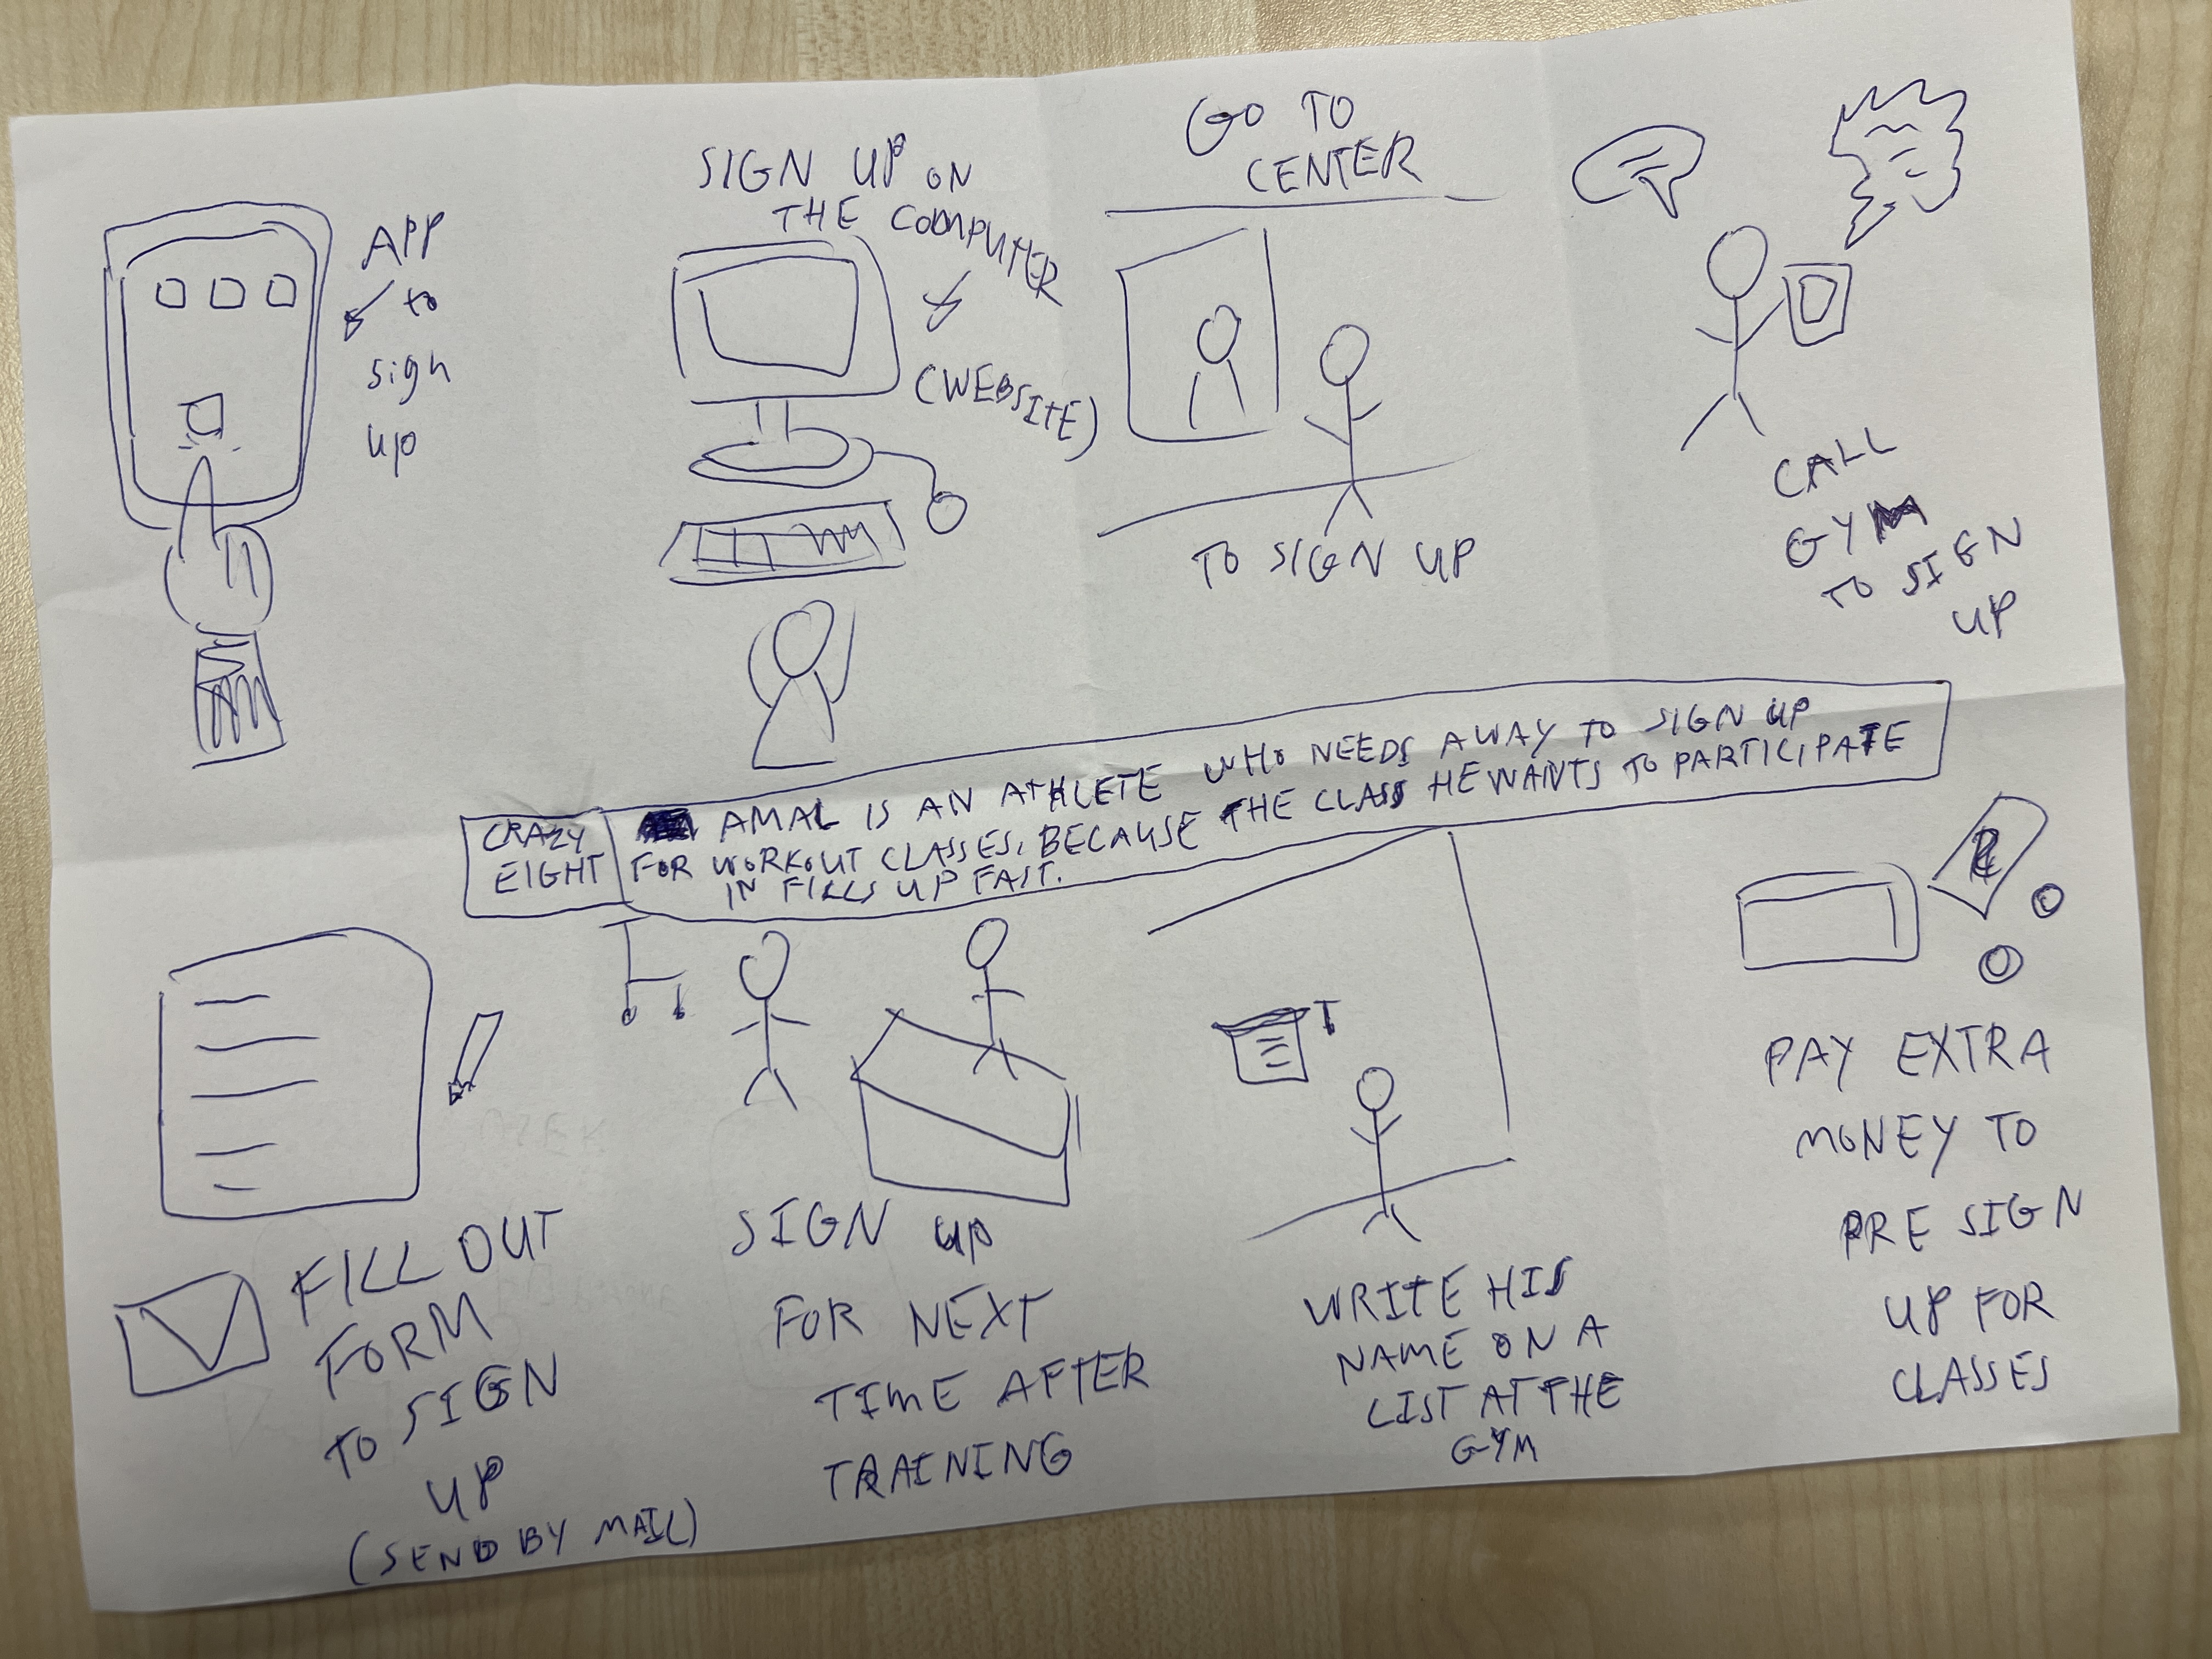 APP
to
sign
up
SIGN UP ON
THE COMPUTER
(WEBSITE)
GO TO
CENTER
TO SIGN UP
CALL
GYM
TO SIGN
UP
CRAZY
EIGHT
AMAL IS AN ATHLETE WHO NEEDS A WAY TO SIGN UP
FOR WORKOUT CLASSES, BECAUSE THE CLASS HE WANTS TO PARTICIPATE
IN FILLS UP FAST.
FILL OUT
FORM
TO SIGN
UP
(SEND BY MAIL)
SIGN UP
FOR NEXT
TIME AFTER
TRAINING
WRITE HIS
NAME ON A
LIST AT THE
GYM
PAY EXTRA
MONEY TO
PRE SIGN
UP FOR
CLASSES